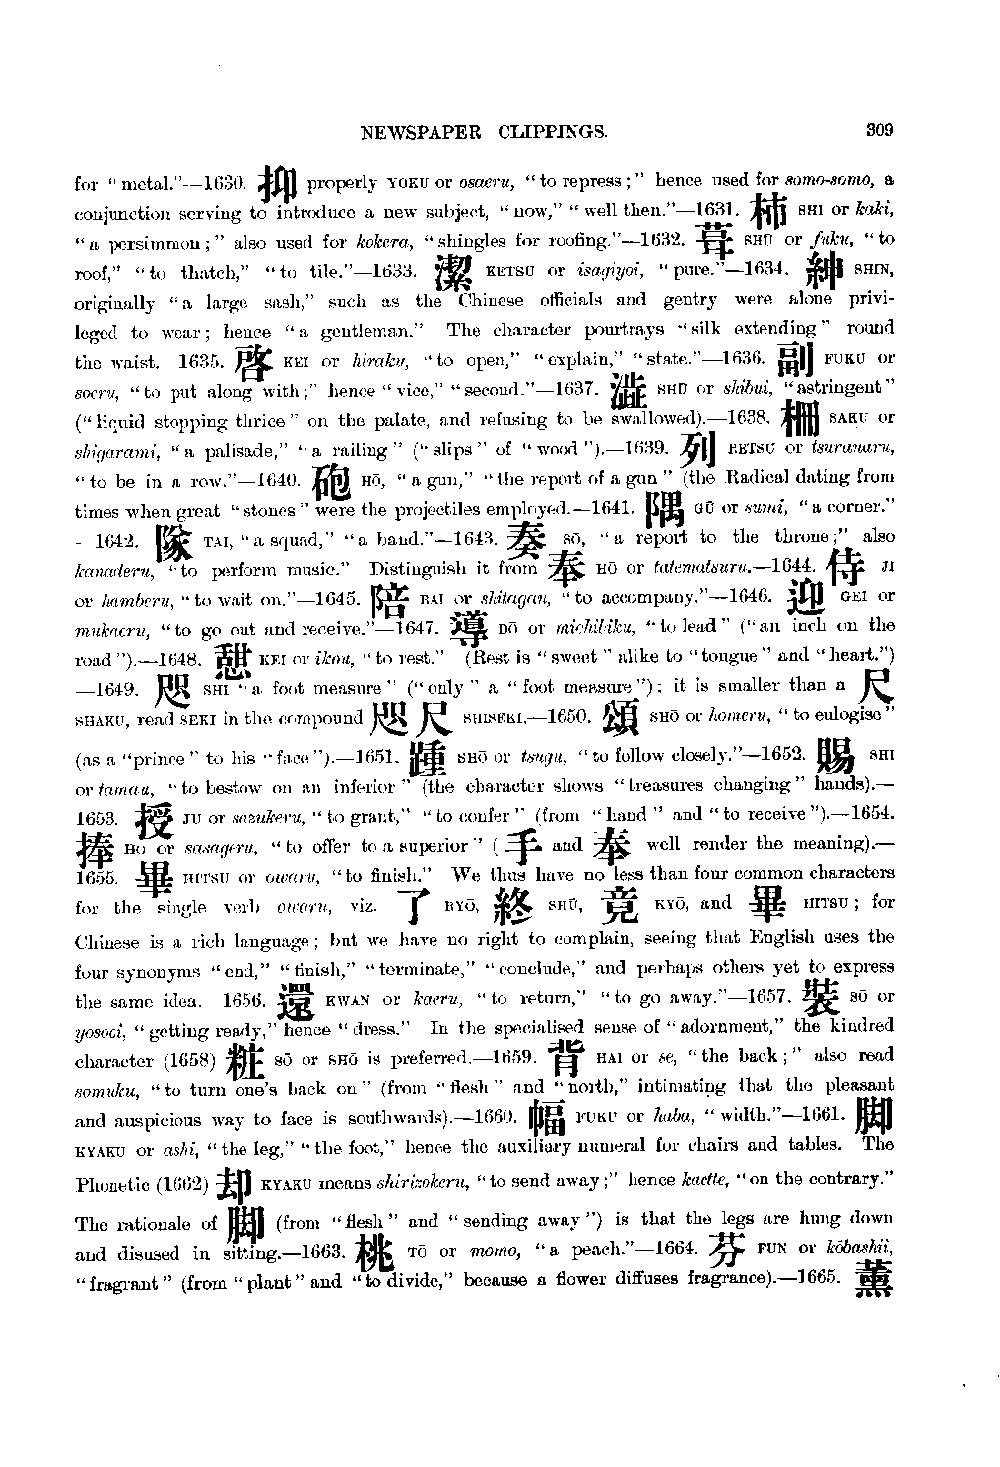 NEWSPAPER CLIPPINGS. 309
for “metal.”—1630. 抑 properly YOKU or osaeru, “to repress;” hence used for somo-somo, a
conjunction serving to introduce a new subject, “now,” “well then.”—1631. 柿 SHI or kaki,
“a persimmon;” also used for kokera, “shingles for roofing.”—1632. 葺 SHŪ or fuku, “to
roof,” “to thatch,” “to tile.”—1633. 潔 KETSU or isagiyoi, “pure.”—1634. 紳 SHIN,
originally “a large sash,” such as the Chinese officials and gentry were alone privi-
leged to wear; hence “a gentleman.” The character pourtrays “silk extending” round
the waist. 1635. 啓 KEI or hiraku, “to open,” “explain,” “state.”—1636. 副 FUKU or
soeru, “to put along with;” hence “vice,” “second.”—1637. 澁 SHŪ or shibui, “astringent”
(“liquid stopping thrice” on the palate, and refusing to be swallowed).—1638. 柵 SAKU or
shigarami, “a palisade,” “a railing” (“slips” of “wood”).—1639. 列 RETSU or tsuranaru,
“to be in a row.”—1640. 砲 HŌ, “a gun,” “the report of a gun” (the Radical dating from
times when great “stones” were the projectiles employed.—1641. 隅 GŪ or sumi, “a corner.”
- 1642. 隊 TAI, “a squad,” “a band.”—1643. 奏 SŌ, “a report to the throne;” also
kanaderu, “to perform music.” Distinguish it from 奉 HŌ or tatematsuru.—1644. 侍 JI
or hamberu, “to wait on.”—1645. 陪 BAI or shitagau, “to accompany.”—1646. 迎 GEI or
mukaeru, “to go out and receive.”—1647. 導 DŌ or michibiku, “to lead” (“an inch on the
road”).—1648. 憇 KEI or ikou, “to rest.” (Rest is “sweet” alike to “tongue” and “heart.”)
—1649. 咫 SHI “a foot measure” (“only” a “foot measure”); it is smaller than a 尺
SHAKU, read SEKI in the compound 咫尺 SHISEKI.—1650. 頌 SHŌ or homeru, “to eulogise”
(as a “prince” to his “face”).—1651. 踵 SHŌ or tsugu, “to follow closely.”—1652. 賜 SHI
or tamau, “to bestow on an inferior” (the character shows “treasures changing” hands).—
1653. 授 JU or sazukeru, “to grant,” “to confer” (from “hand” and “to receive”).—1654.
捧 HŌ or sasageru, “to offer to a superior” (手 and 奉 well render the meaning).—
1655. 畢 HITSU or owaru, “to finish.” We thus have no less than four common characters
for the single verb owaru, viz. 了 RYŌ, 終 SHŪ, 竟 KYŌ, and 畢 HITSU; for
Chinese is a rich language; but we have no right to complain, seeing that English uses the
four synonyms “end,” “finish,” “terminate,” “conclude,” and perhaps others yet to express
the same idea. 1656. 還 KWAN or kaeru, “to return,” “to go away.”—1657. 裝 SŌ or
yosooi, “getting ready,” hence “dress.” In the specialised sense of “adornment,” the kindred
character (1658) 粧 SŌ or SHŌ is preferred.—1659. 背 HAI or se, “the back;” also read
somuku, “to turn one’s back on” (from “flesh” and “north,” intimating that the pleasant
and auspicious way to face is southwards).—1660. 幅 FUKU or haba, “width.”—1661. 脚
KYAKU or ashi, “the leg,” “the foot,” hence the auxiliary numeral for chairs and tables. The
Phonetic (1662) 却 KYAKU means shirizokeru, “to send away;” hence kaette, “on the contrary.”
The rationale of 脚 (from “flesh” and “sending away”) is that the legs are hung down
and disused in sitting.—1663. 桃 TŌ or momo, “a peach.”—1664. 芬 FUN or kōbashii,
“fragrant” (from “plant” and “to divide,” because a flower diffuses fragrance).—1665. 薫